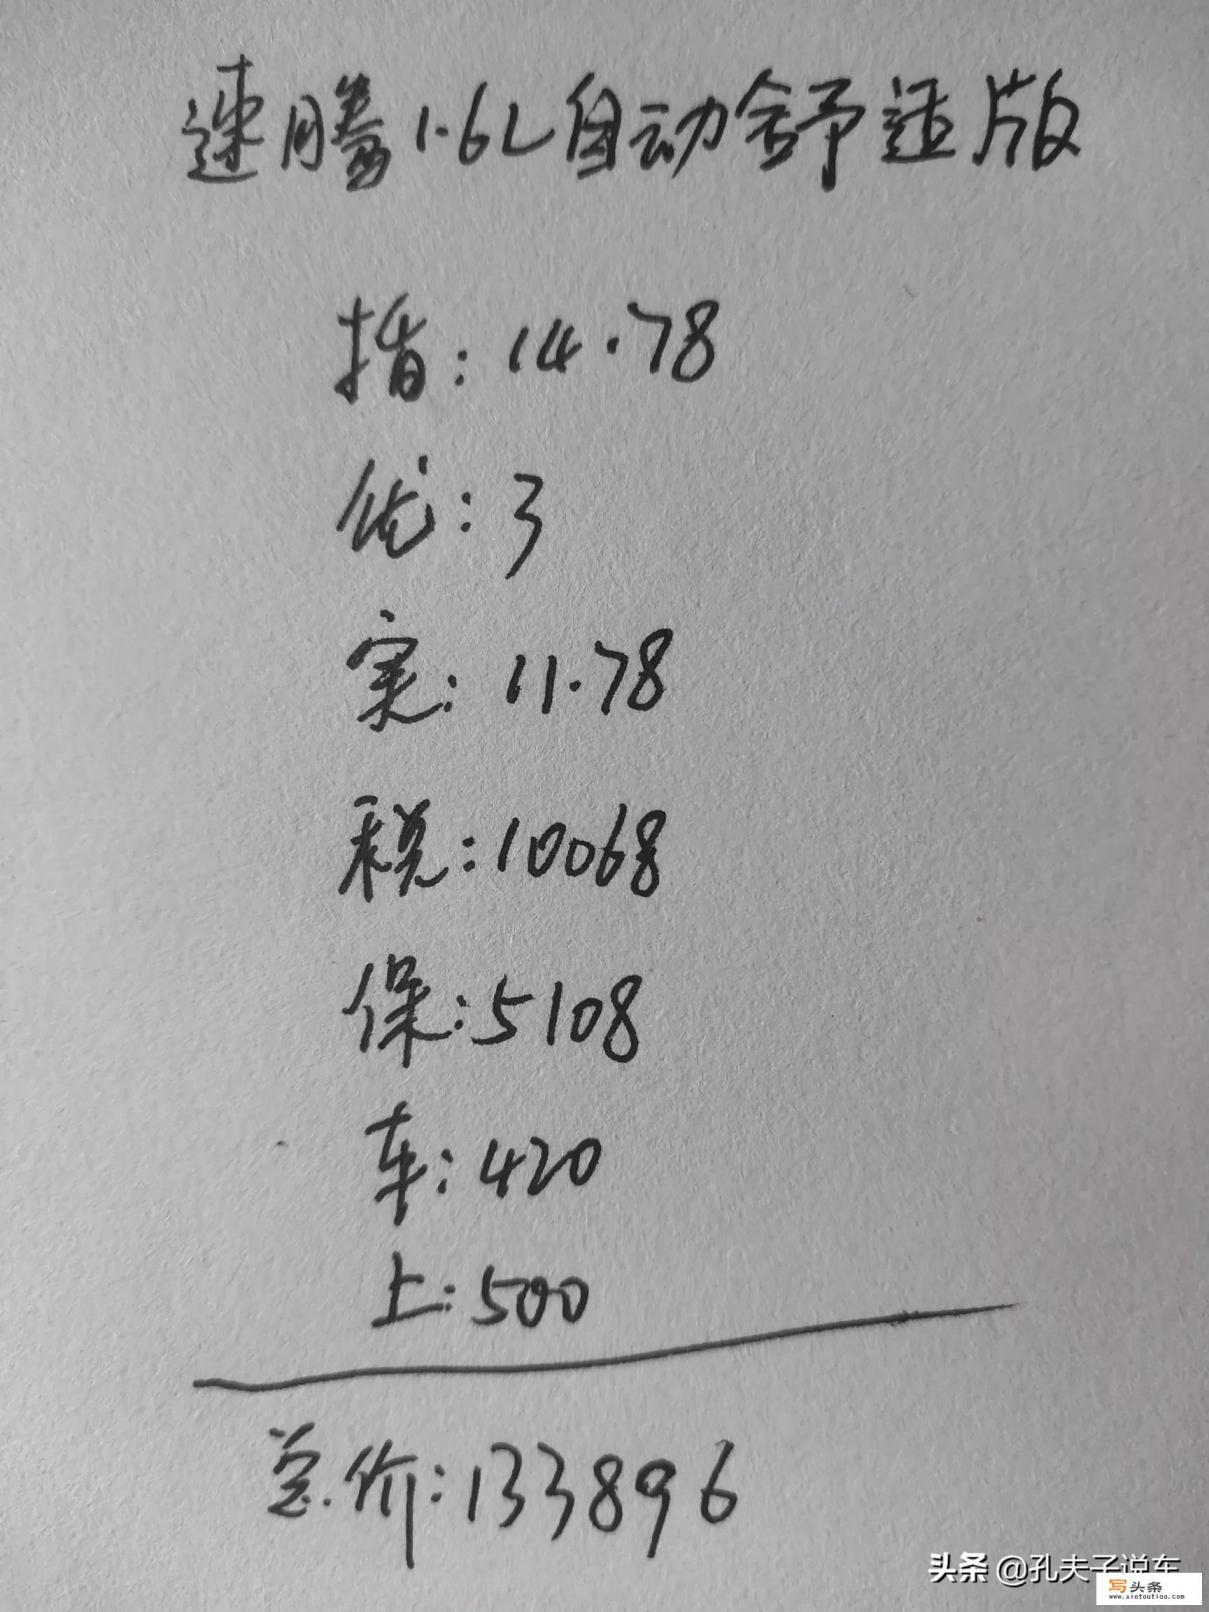 速腾1.6L自动舒适版
指:14.78
优:3
实:11.78
税:10068
保:5108
车:420
上:500
总价:133896
头条 @孔夫子说车
写头条
www.xietoutiao.com